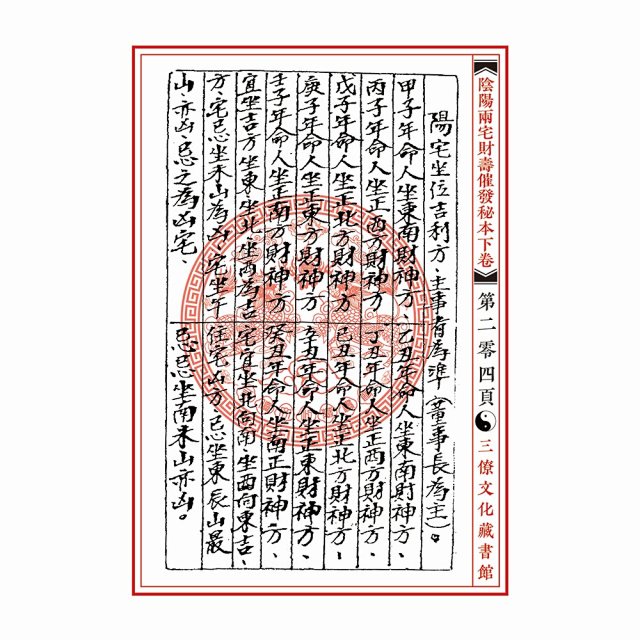 陰陽兩宅財壽催發秘本下卷 第二零四頁 三僚文化藏書館
陽宅坐位吉利方、主事者為準(董事長為主)。
甲子年命人坐東南財神方、乙丑年命人坐東南財神方、
丙子年命人坐正西方財神方、丁丑年命人坐正西方財神方、
戊子年命人坐正北方財神方 己丑年命人坐正北方財神方、
庚子年命人坐正東方財神方 辛丑年命人坐正東財神方、
壬子年命人坐正南方財神方 癸丑年命人坐南正財神方、
宜坐吉方坐東坐北坐西為吉 宅宜坐北向南、坐西向東吉、
方、宅忌坐未山為凶、宅坐午 住宅凶方忌坐東辰山最
山亦凶、忌之為凶宅、 忌忌坐南未山亦凶。